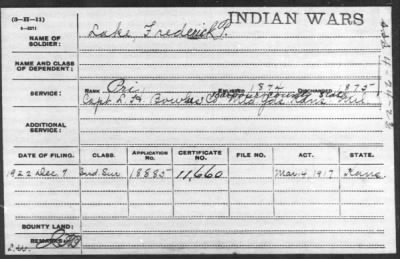 (3-III-11)
INDIAN WARS
NAME OF SOLDIER:
Lake, Frederick P.
NAME AND CLASS OF DEPENDENT:
SERVICE:
RANK Pri ENLISTED 1874 DISCHARGED 1875
Capt. L. H. Bowlus Co Barbour County State Mil Jas Kans Mil
ADDITIONAL SERVICE:
DATE OF FILING. CLASS. APPLICATION No. CERTIFICATE No. FILE NO. ACT. STATE.
1922 Dec. 7 Ind. Sur. 18885 11,660 Mar. 4, 1917 Kans.
BOUNTY LAND:
REMARKS: